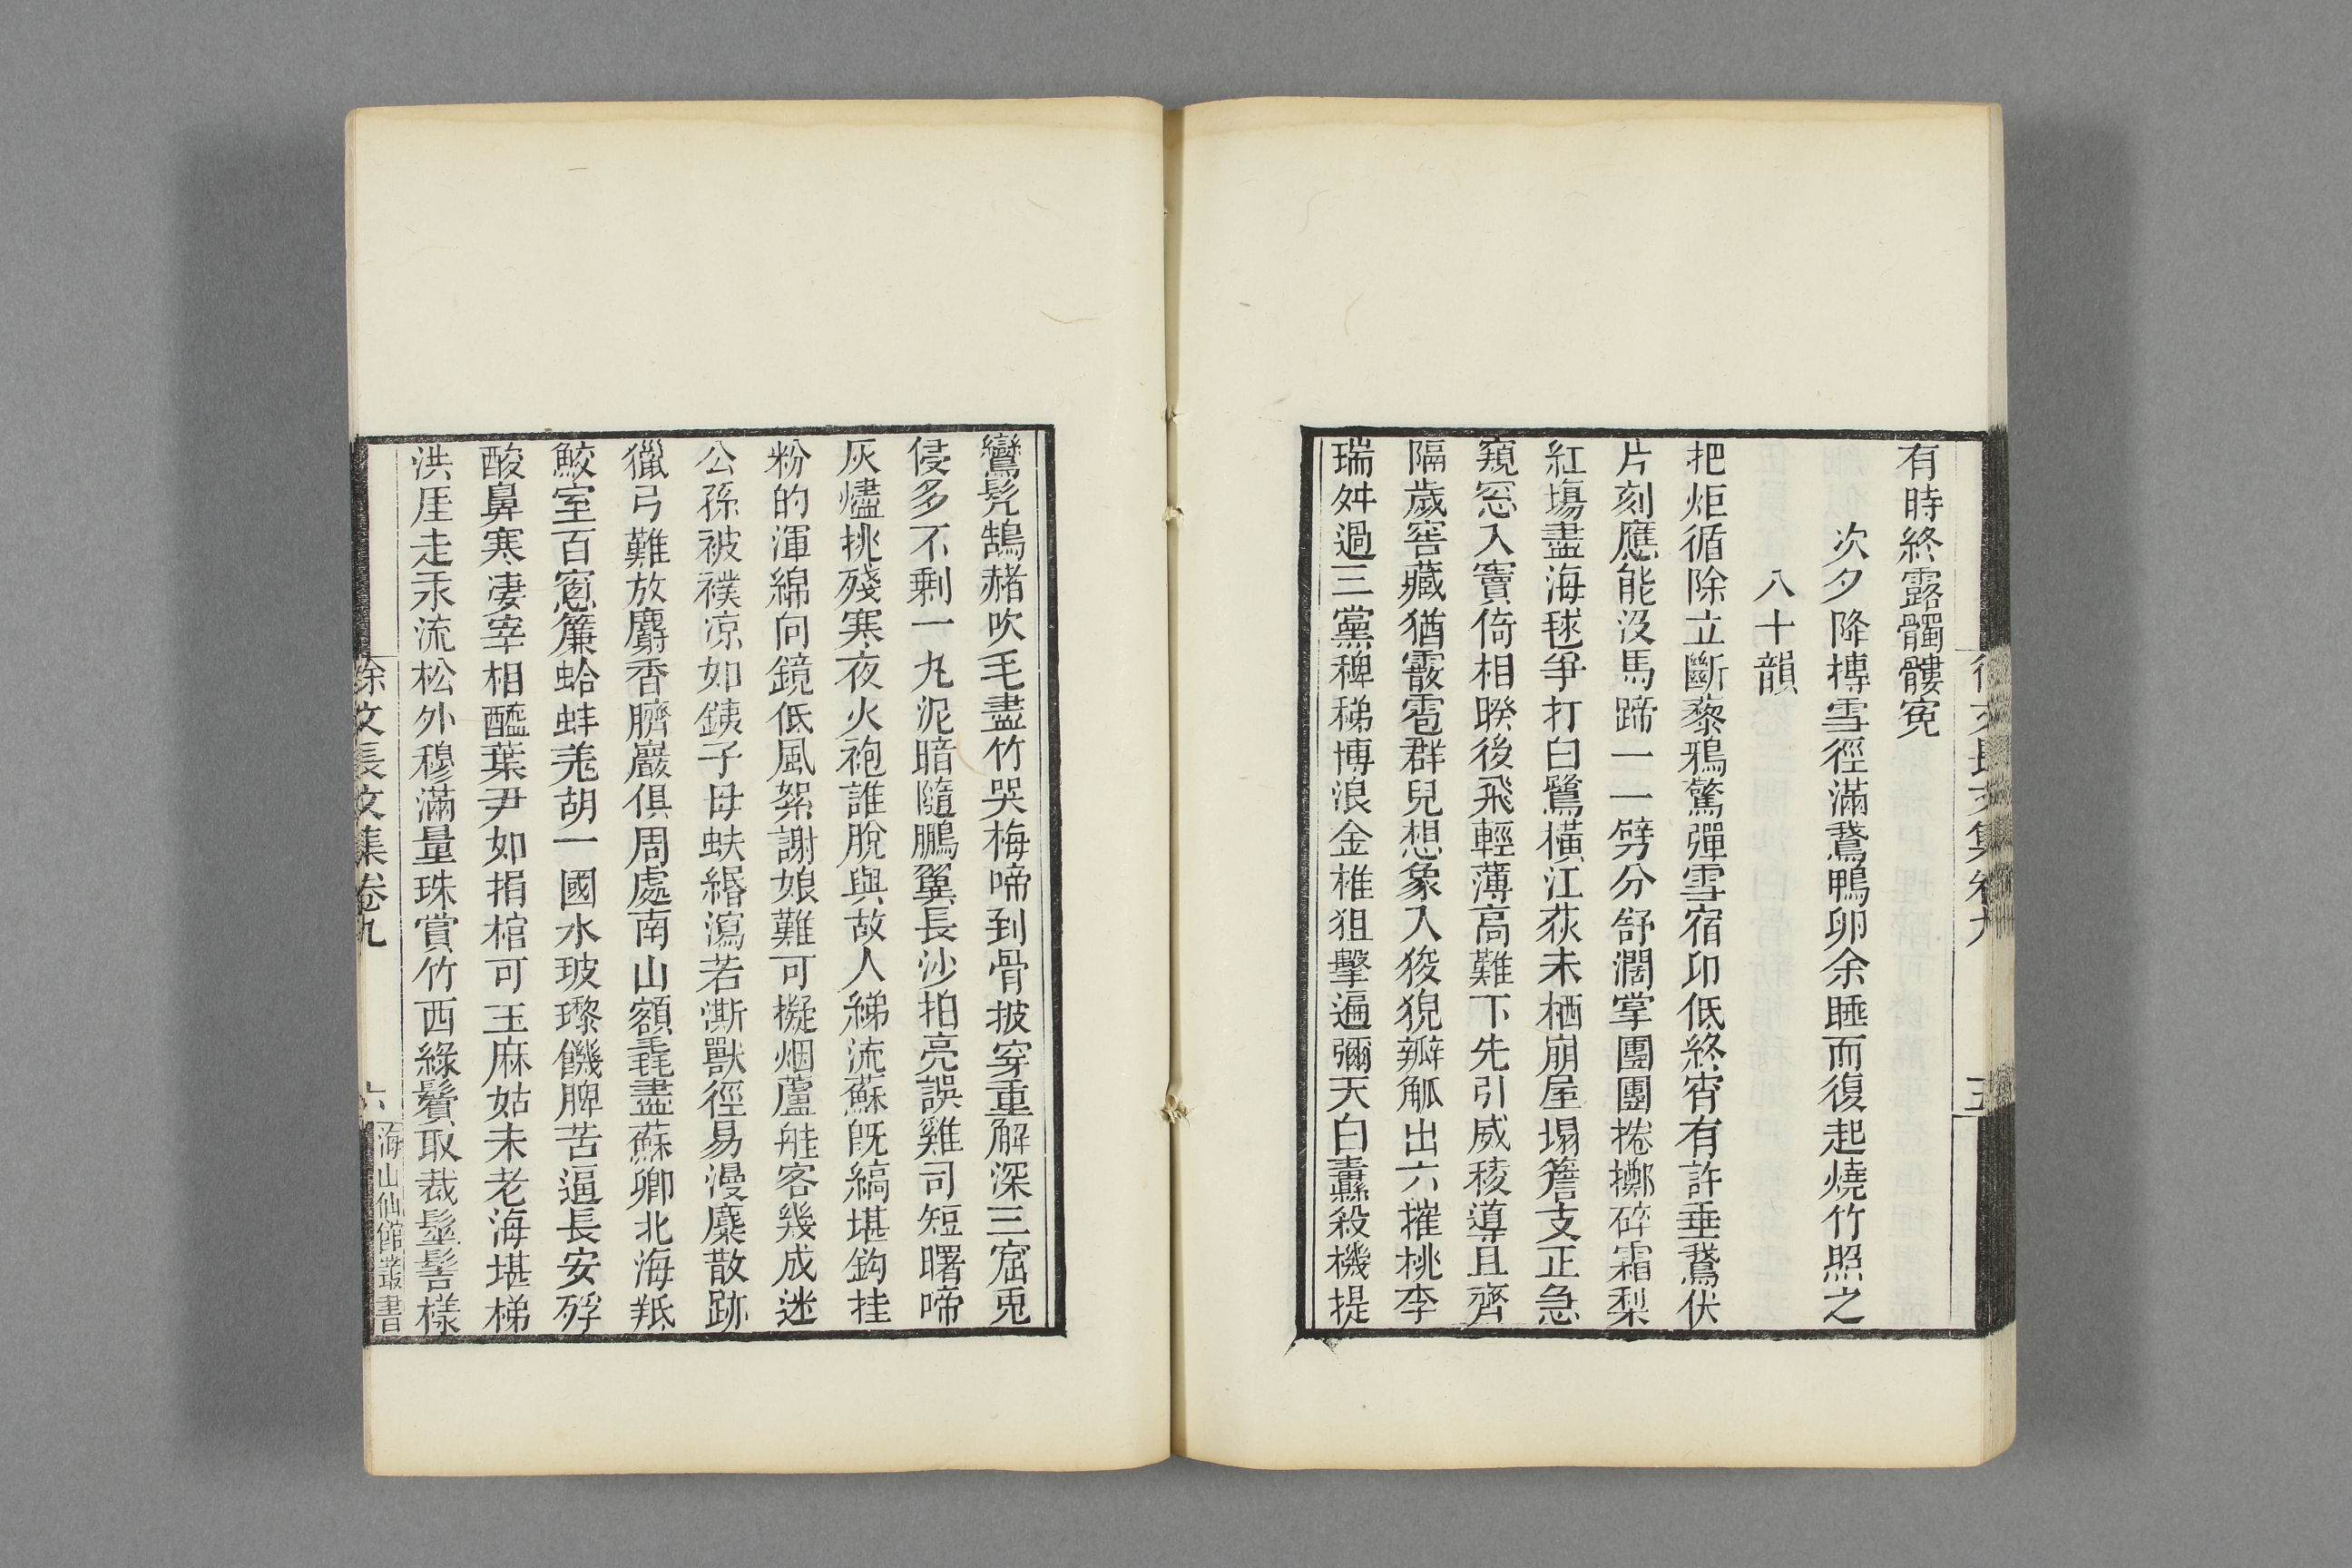 有時終露髑髏寃
次夕降摶雪徑滿鵞鴨卵余睡而復起燒竹照之
八十韻
把炬循除立斷藜鴉驚彈雪宿卬低終宵有許垂鵞伏
片刻應能没馬蹄一一劈分舒濶掌團團捲擲碎霜梨
紅塲盡海毬爭打白鷺橫江荻未栖崩屋塌簷支正急
窺窓入竇倚相暌後飛輕薄高難下先引威稜導且齊
隔歲窖藏猶霰雹群兒想象入狻猊瓣觚出六摧桃李
瑞舛過三黨稗稊博浪金椎狙擊遍彌天白纛殺機提
徐文長文集卷九
五
鸞髠鵠赭吹毛盡竹哭梅啼到骨披穿重解深三窟兎
侵多不剩一丸泥暗隨鵬翼長沙拍亮誤雞司短曙啼
灰燼挑殘寒夜火袍誰脫與故人綈流蘇旣縞堪鈎挂
粉的渾綿向鏡低風絮謝娘難可擬烟蘆舡客幾成迷
公孫被襆凉如銕子母蚨緡瀉若澌獸徑易漫麋散跡
獵弓難放麝香臍巖俱周處南山額毳盡蘇卿北海羝
鮫室百窻簾蛤蚌羗胡一國水玻瓈饑脾苦逼長安殍
酸鼻寒凄宰相醯葉尹如捐棺可玉麻姑未老海堪梯
洪厓走汞流松外穆滿量珠賞竹西綠鬢取裁髼髻樣
徐文長文集卷九
六
海山仙館叢書